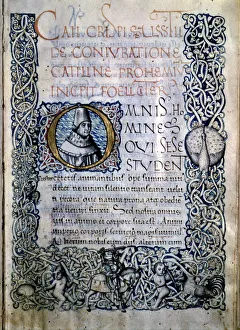 CAII CRISPI SALLVSTII
DE CONIVRATIONE
CATILINE PROHEMIV
INCIPIT FOELICITER
OMNIS HO
MINES
QVI SESE
STVDEN
ceteris animantibus ope summa niti
decet ne vitam silentio transeant velu
ti pecora que natura prona atq; obedie
ventri finxit Sed nostra omnis
uis in animo et corpore sita
animi imperio corporis servitio magis utimur
Alterum nobis cum diis alterum cum